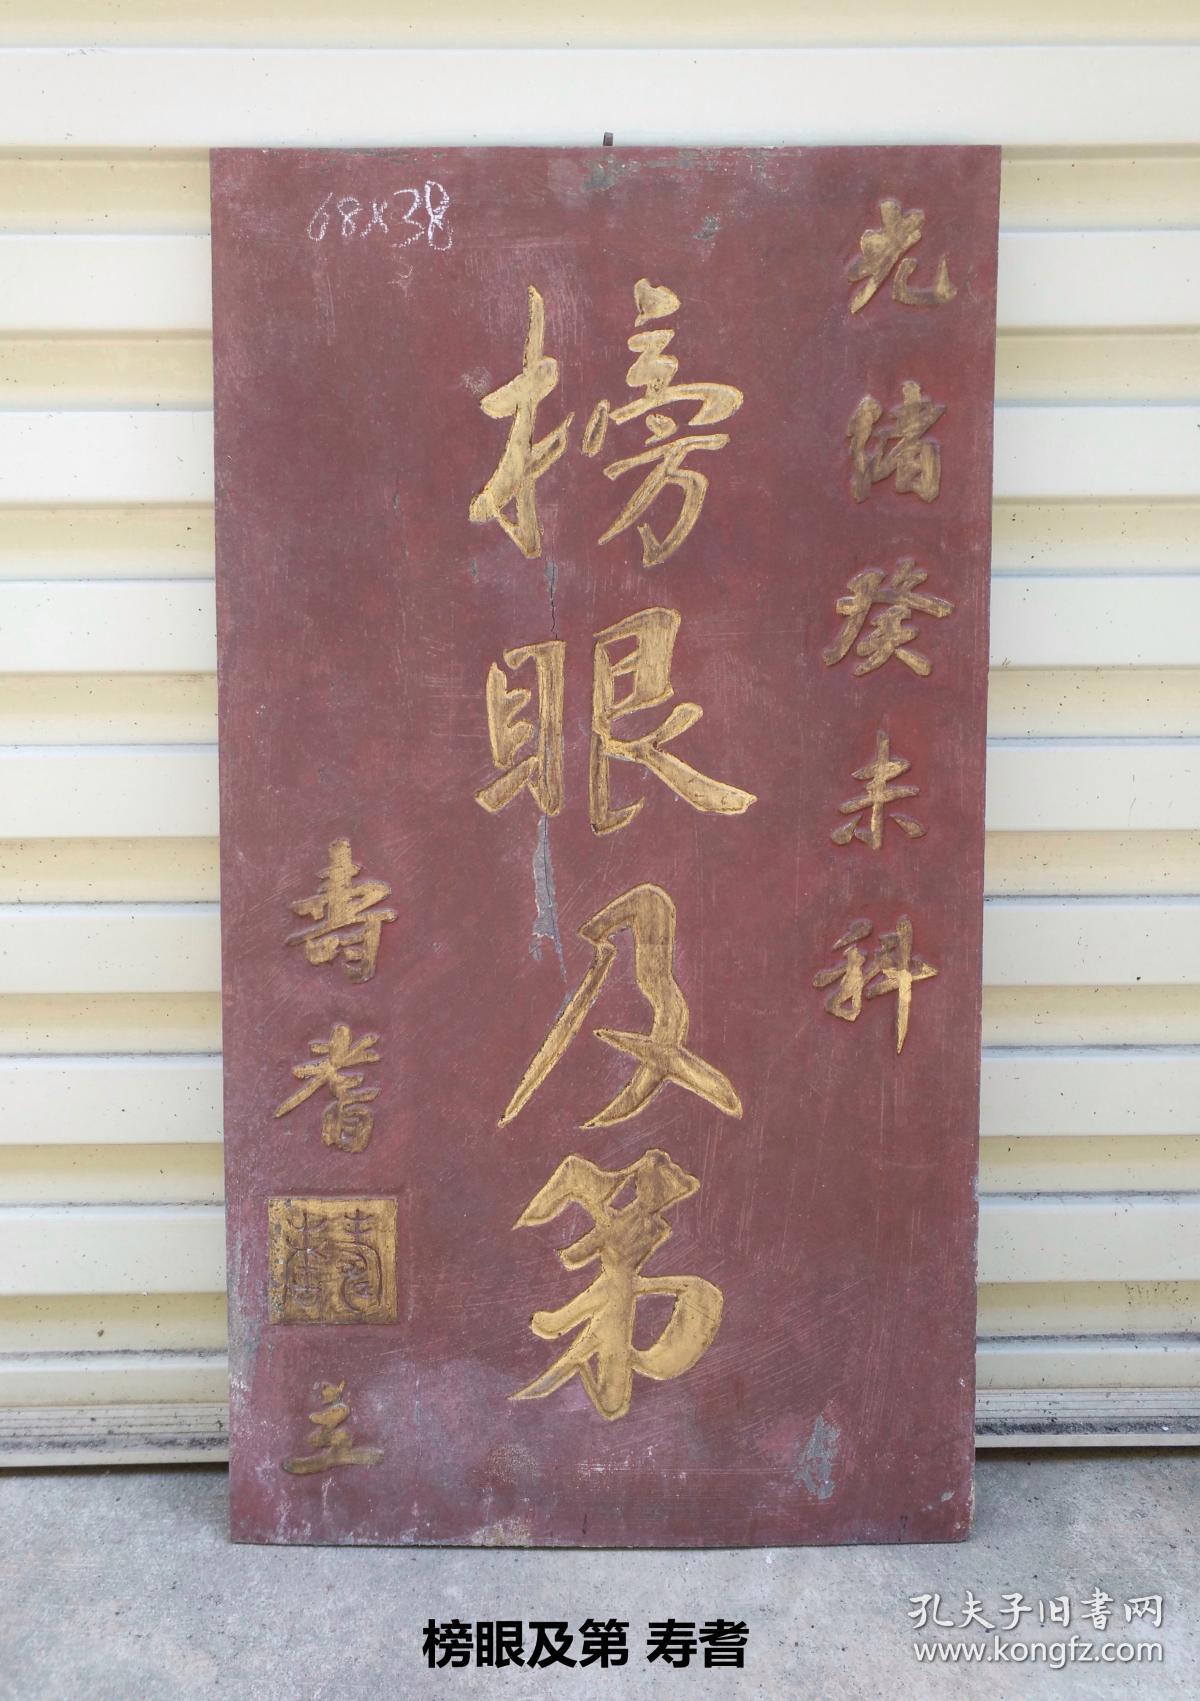 68x38
光緒癸未科
榜眼及第
壽耆
立
榜眼及第 寿耆
孔夫子旧書网
www.kongfz.com